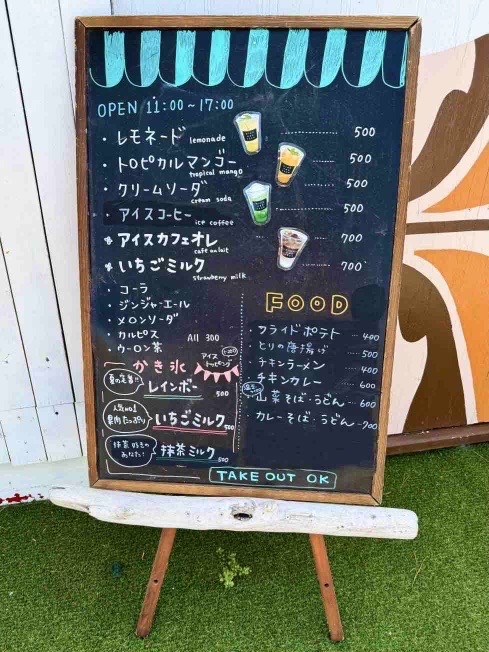 OPEN 11:00～17:00
・レモネード lemonade 500
・トロピカルマンゴー tropical mango 500
・クリームソーダ cream soda 500
・アイスコーヒー ice coffee 500
アイスカフェオレ cafe au lait 700
いちごミルク strawberry milk 700
・コーラ
・ジンジャーエール
・メロンソーダ
・カルピス
・ウーロン茶
All 300
かき氷
アイストッピング
夏の定番!!
レインボー 500
人気no.1 果肉たっぷり
いちごミルク 500
抹茶好きのあなた!
抹茶ミルク 500
FOOD
・フライドポテト 400
・とりの唐揚げ 500
・チキンラーメン 400
・チキンカレー 600
・山菜そば・うどん 600
・カレーそば・うどん 700
TAKE OUT OK